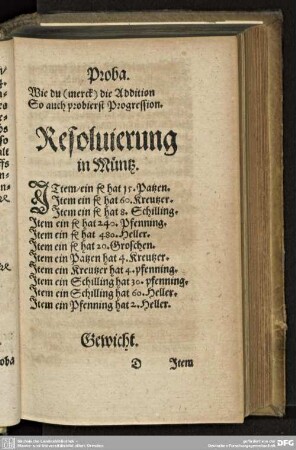 Proba.
Wie du (merck) die Addition
So auch probierst Progression.
Resoluierung
in Müntz.
ITem/ein fl hat 15. Patzen.
Item ein fl hat 60. Kreutzer.
Item ein fl hat 8. Schilling.
Item ein fl hat 240. Pfenning.
Item ein fl hat 480. Heller.
Item ein fl hat 20. Groschen.
Item ein Patzen hat 4. Kreutzer.
Item ein Kreutzer hat 4. pfenning.
Item ein Schilling hat 30. pfenning.
Item ein Schilling hat 60. Heller.
Item ein Pfenning hat 2. Heller.
Gewicht.
D Item
oba
DFG